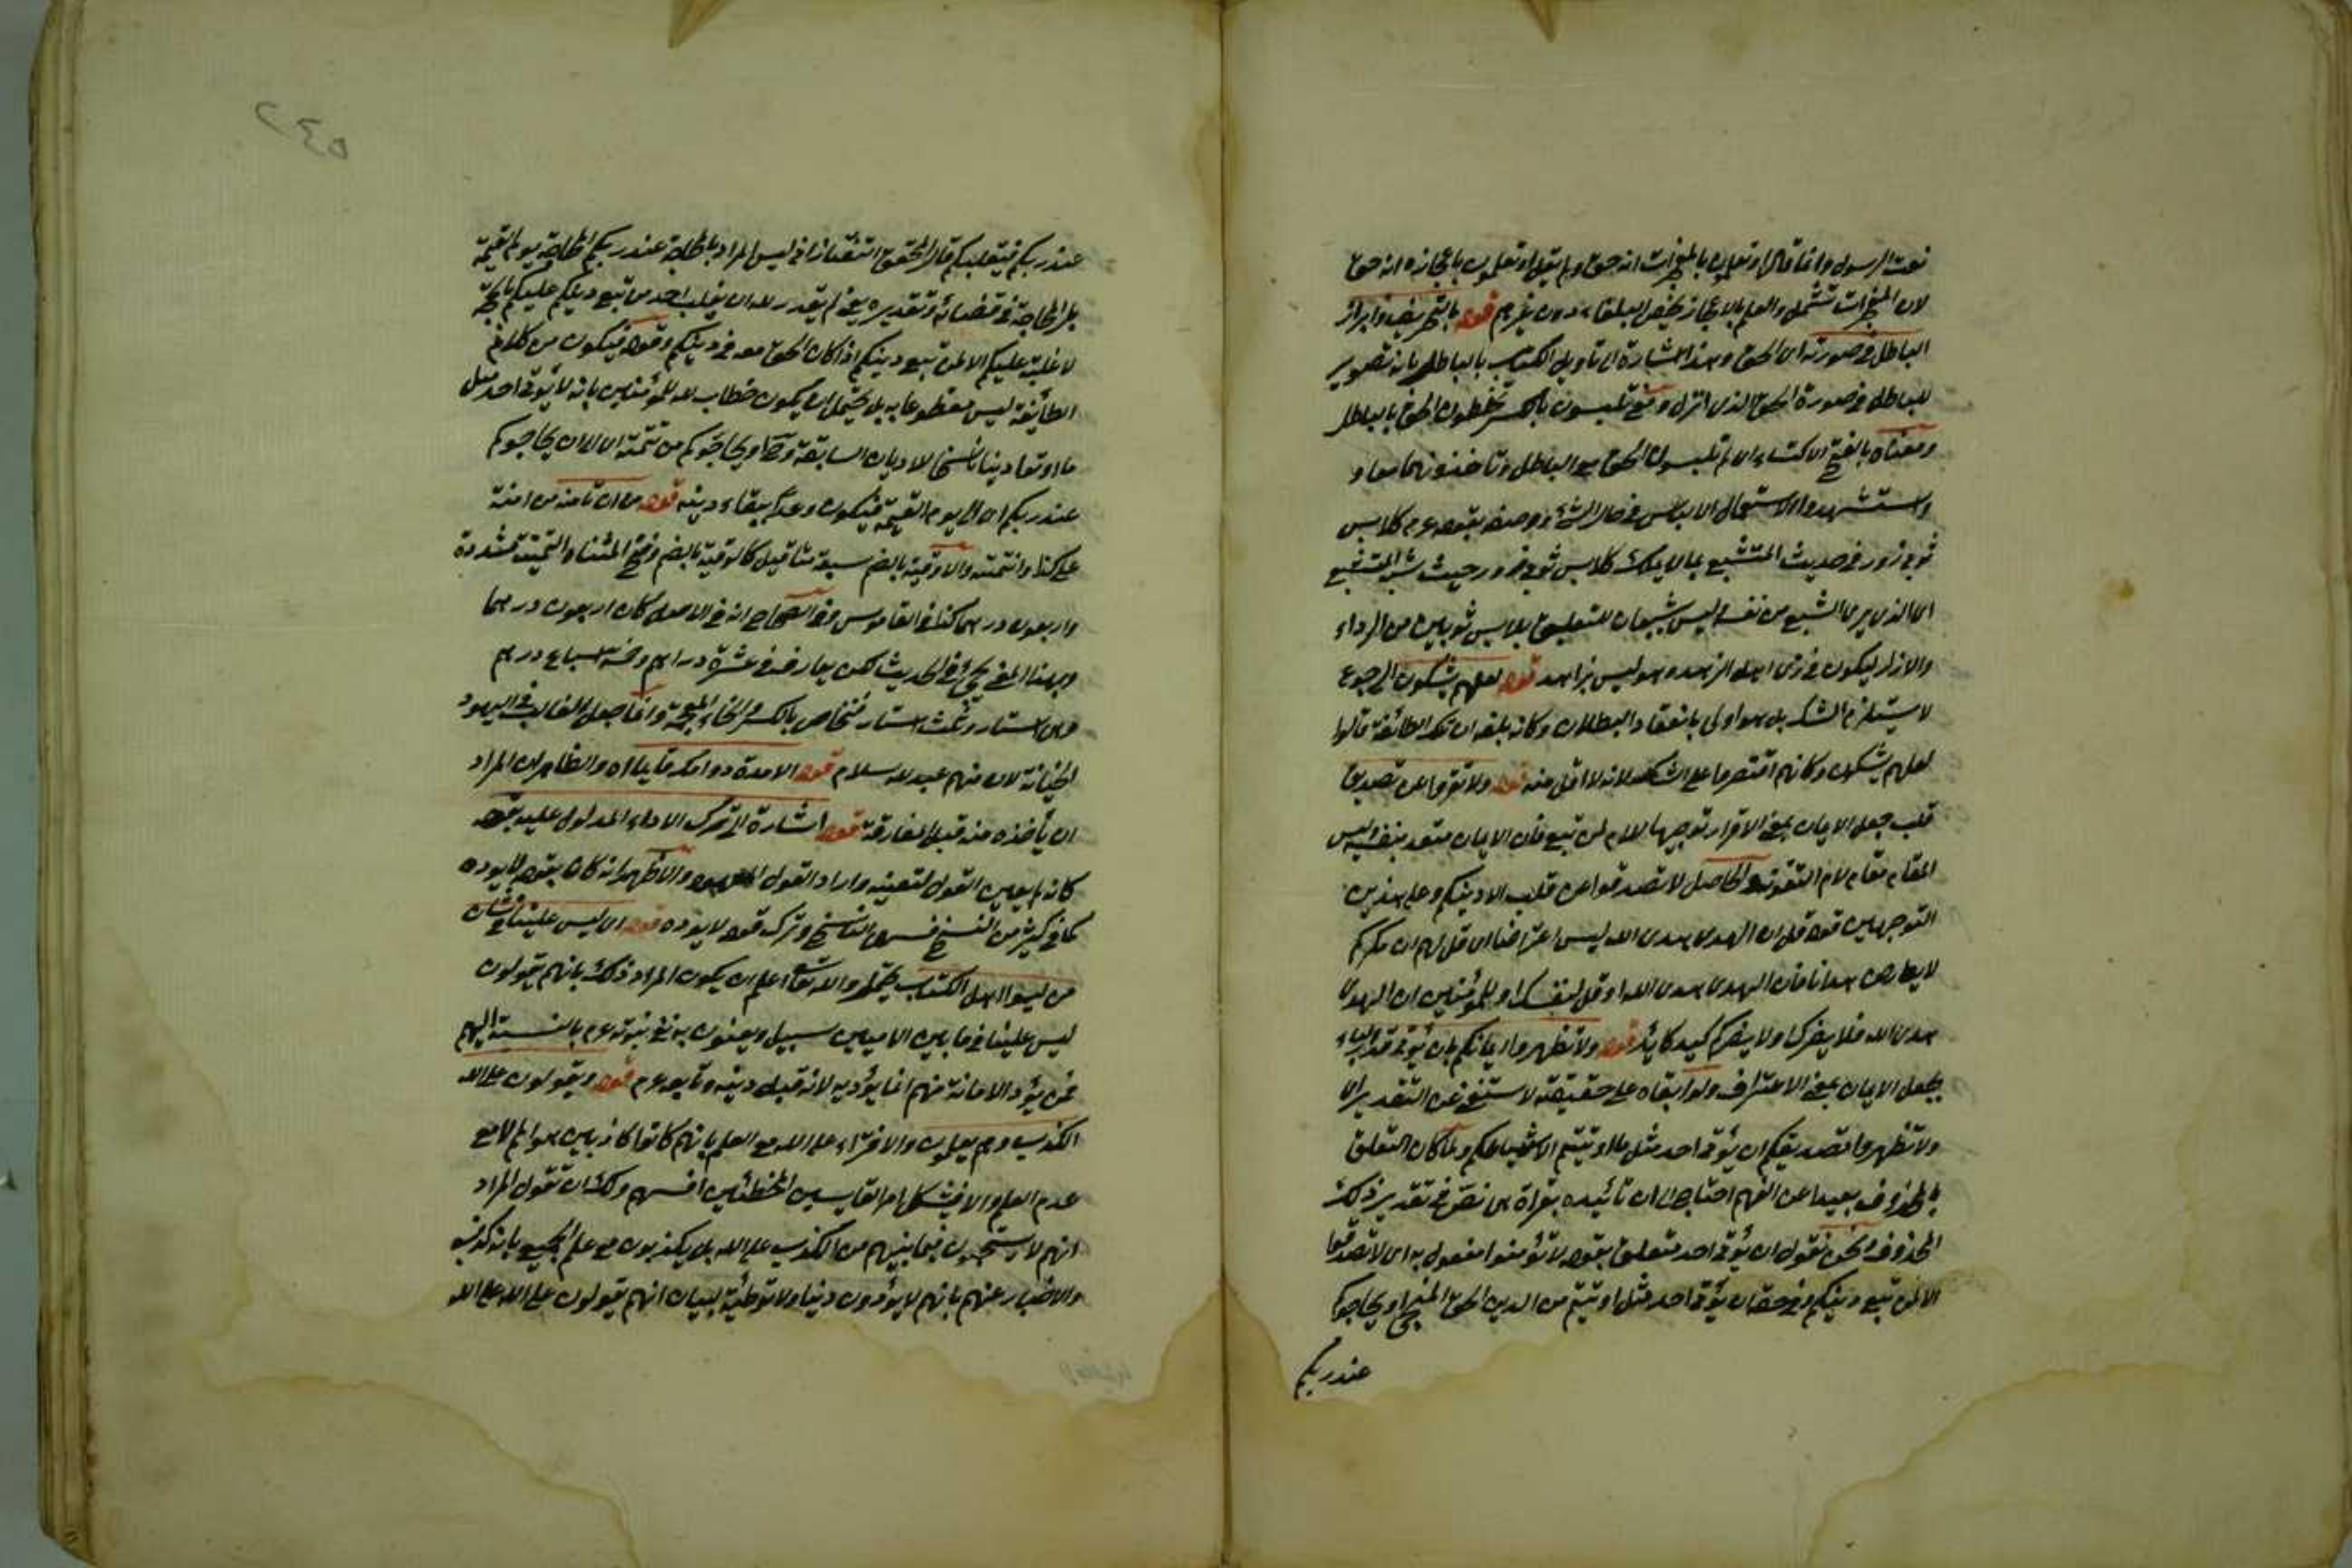 نعت الرسول وانما قال او تعلمون بالمعجزات انه حق ولم يقل او تعلمون باعجازه انه حق
لان المعجزات تشتمل والعلم بالاعجاز يخص البلغاء دون غيرهم قوله بالتحريف وابراز
الباطل في صورته اى الحق وهذا اشارة الى تأويل الكتاب بالباطل بانه تصوير
للباطل في صورة الحق الذى انزل ومعنى تلبسون بالكسر تخلطون الحق بالباطل
ومعناه بالفتح الاكتساء اى لم تلبسون الحق مع الباطل وتأخذونهما معا و
واستشهدوا لاستعمال اللابس في حال الشئ ووصفه بقوله عم كلابس
ثوبى زور في حديث المتشبع بما لا يملك كلابس ثوبى زور حيث شبه المتشبع
اى الذى يرى الشبع من نفسه وليس شبعان بلابس ثوبين من الرداء
والازار ليكون في زى اهل الزهد وهو ليس بزاهد قوله لعلهم يشكون الرجوع
لا يستلزم الشك بل هو اولى باعتقاد البطلان وكانه بلغه ان تلك الطائفة قالوا
لعلهم يشكون وكانهم اقتصروا على الشك لانه لا اقل منه قوله ولا تقروا عن تصديق
قلب جعل الايمان بمعنى الاقرار توجيها للام لمن تبع فان الايمان متعد بنفسه وليس
المقام مقام لام التقوية والحاصل لا تصدقوا عن قلب الا دينكم وعلى هذين
التوجيهين قوله قل ان الهدى هدى الله ليس اعتراضا اى قل لهم ان مكركم
لا يعارض هدانا فان الهدى هدى الله او قل لنفسك او للمؤمنين ان الهدى
هدى الله فلا يضرك ولا يضركم كيد كائد قوله ولا تظهروا ايمانكم بان يؤتى قدر الباء
لجعل الايمان بمعنى الاعتراف ولو ابقاه على حقيقته لاستغنى عن التقدير اى
ولا تظهروا تصديقكم ان يؤتى احد مثل ما اوتيتم الا لاشياعكم ولما كان التعلق
بالمحذوف بعيدا عن الفهم احتاج الى ان تأييده بقراءة هى نص في تقدير ذلك
المحذوف ونحن نقول ان يؤتى احد متعلق بقوله لا تؤمنوا مفعول به اى لا تصدقوا
الا لمن تبع دينكم وفي حقه ان يؤتى احد مثل ما اوتيتم من الدين الحق او يحاجوكم
عند ربكم
عند ربكم فيغلبكم قال المحقق التفتازانى ليس المراد بالمحاجة عند ربكم المحاجة يوم القيمة
بل المحاجة في قضائه وتقديره يعنى لم يقدر الله ان يغلب احد من تبع دينكم عليكم بالحجة
لا غلبة عليكم الا لمن تبع دينكم اذا كان الحق معه في دينكم وقوله فيكون من كلام
الطائفة ليس مقطوعا به بل يحتمل ان يكون خطاب الله للمؤمنين بانه لا يؤتى احد مثل
ما اوتوا دينا ناسخا لاديان السابقة وح او يحاجوكم من تتمته اى الى ان يحاجوكم
عند ربكم اى الى يوم القيمة فيكون وعدا ببقاء دينه قوله من ان تأمنه من امنته
على كذا وائتمنته والاوقية بالضم سبعة مثاقيل كالوقية بالضم وفتح المثناة التحتية مشددة
واربعون درهما كذا في القاموس وفي الصحاح انه في الاصل كان اربعون درهما
وبهذا المعنى يجئ في الحديث لكن يعارضه في عشرة دراهم وخمسة اسباع درهم
وهى استار وثلث استار فنحاص بالكسر والخاء المعجمة وانما جعل الغالب في اليهود
الخيانة لان منهم عبد الله سلام قوله الا مدة دوامك قائما اه والظاهر ان المراد
ان يأخذه منه قبل المفارقة قوله اشارة الى ترك الاداء المدلول عليه بقوله
كانه لم يعين القول لتعينه واراد القول المعهود والاظهر انه كان بقوله لا يؤده
كما في كثير من النسخ فسها الناسخ وترك قوله لا يؤده قوله اى ليس علينا في شأن
من ليسوا اهل الكتاب يحتمل والله تعالى اعلم ان يكون المراد ذلك بانهم يقولون
ليس علينا فيما بين الاميين سبيل ويعنون به نفى نبوته عم بالنسبة اليهم
فمن يؤد الامانة منهم انما يؤديه لانه قبل دينه وتابعه عم قوله ويقولون على الله
الكذب وهم يعلمون والافتراء على الله مع العلم بانهم كانوا كاذبين هو اللازم مع
عدم العلم والا فيشكل امر القايسين المخطئين انفسهم ولك ان تقول المراد
انهم لا يستحيون فيما بينهم من الكذب على الله بل يكذبون مع علم الجميع بانه كذب
والاخبار عنهم بانهم لا يؤدون دينارا توطئة لبيان انهم يقولون على الله على الله